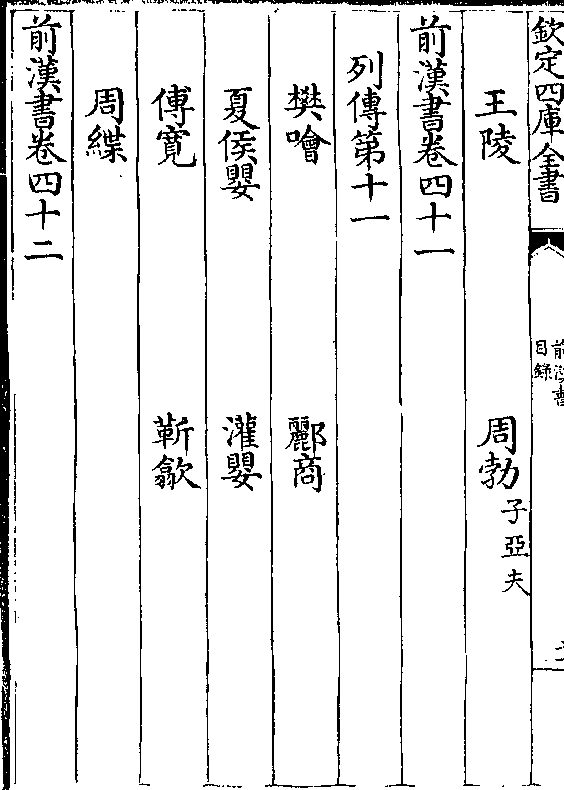 欽定四庫全書
前漢書
目錄
王陵 周勃 子亞夫
前漢書卷四十一
列傳第十一
樊噲 酈商
夏侯嬰 灌嬰
傅寛 靳歙
周緤
前漢書卷四十二